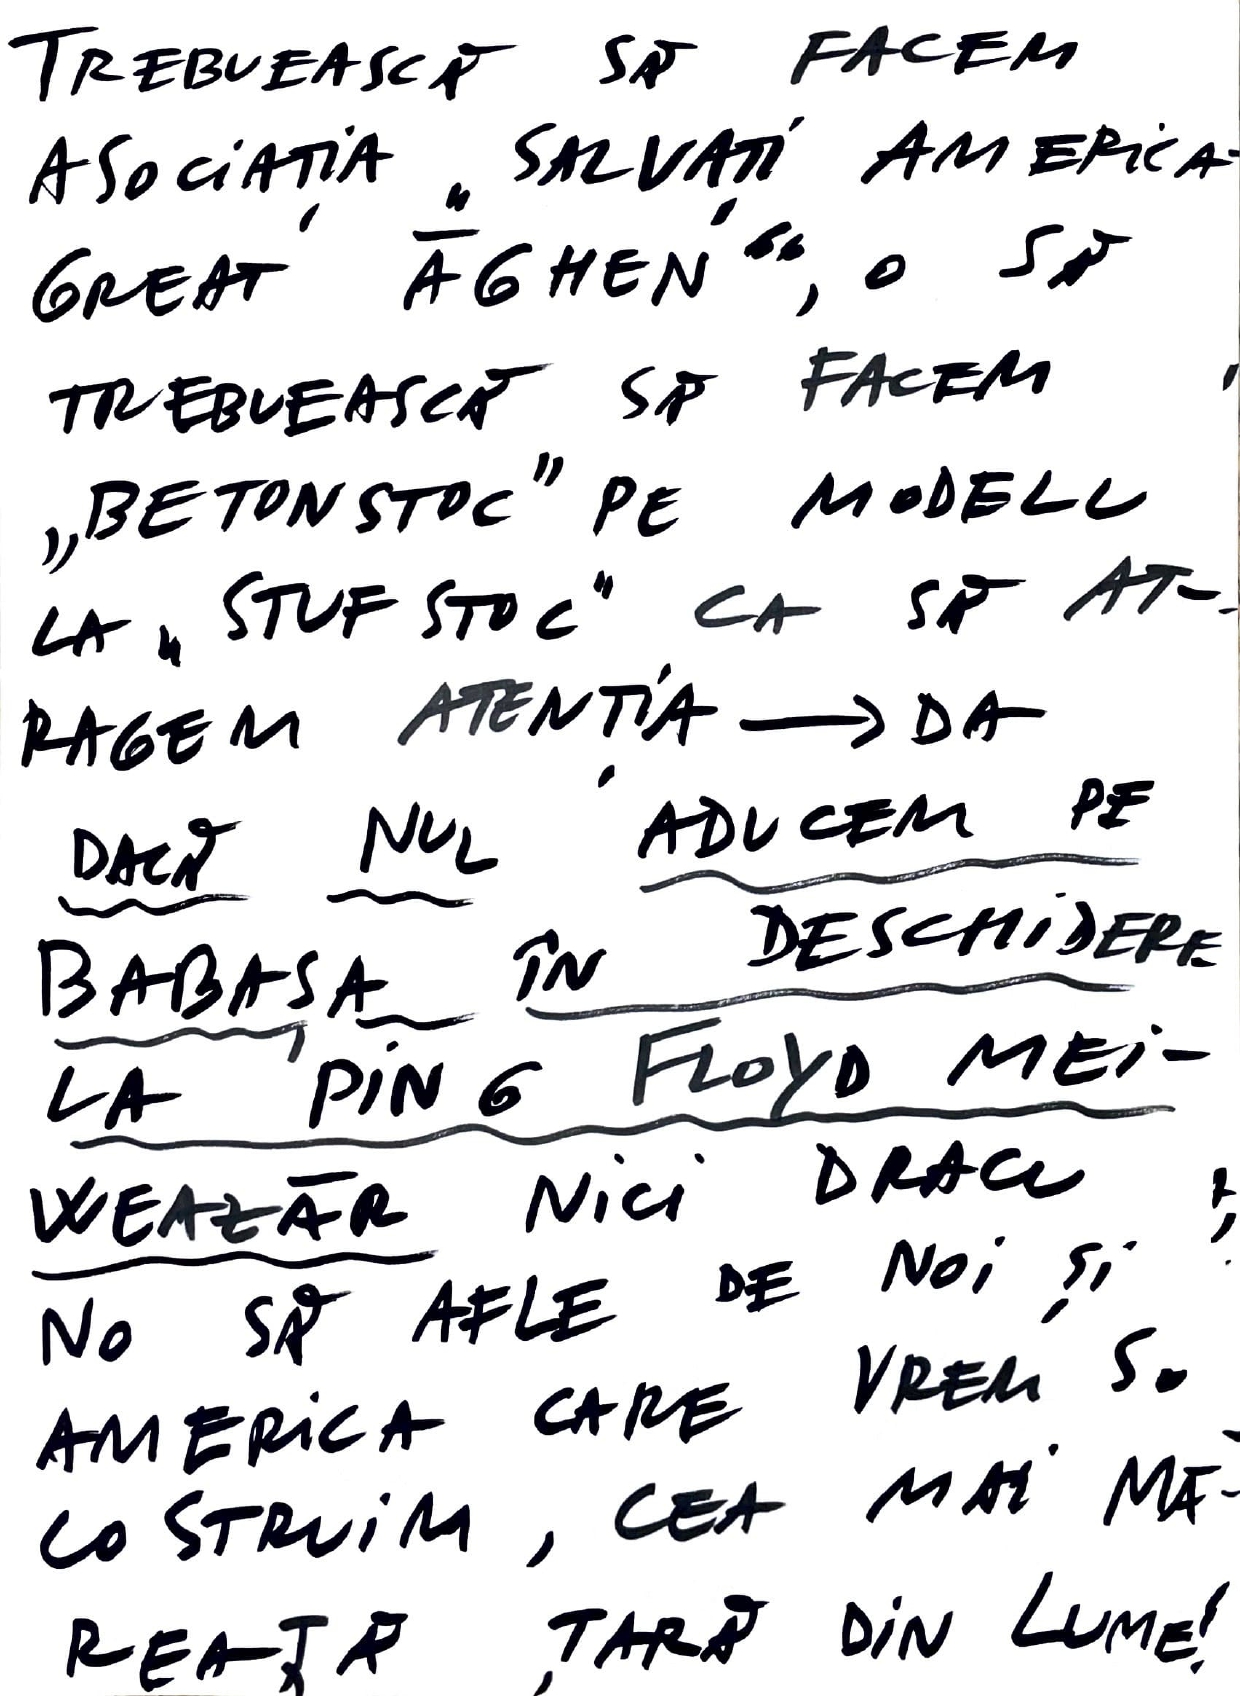 TREBUEASCĂ SĂ FACEM
ASOCIAȚIA „SALVAȚI AMERICA-
GREAT ĀGHEN“, O SĂ
TREBUEASCĂ SĂ FACEM
„BETONSTOC” PE MODELU
LA „STUFSTOC" CA SĂ AT-
RAGEM ATENȚIA → DA
DACĂ NUL ADUCEM PE
BABAȘA ÎN DESCHIDERE
LA PING FLOYD MEI-
WEAZĀR NICI DRACU
NO SĂ AFLE DE NOI ȘI
AMERICA CARE VREM SO
COSTRUIM, CEA MAI MĂ-
REAȚĂ ȚARĂ DIN LUME!